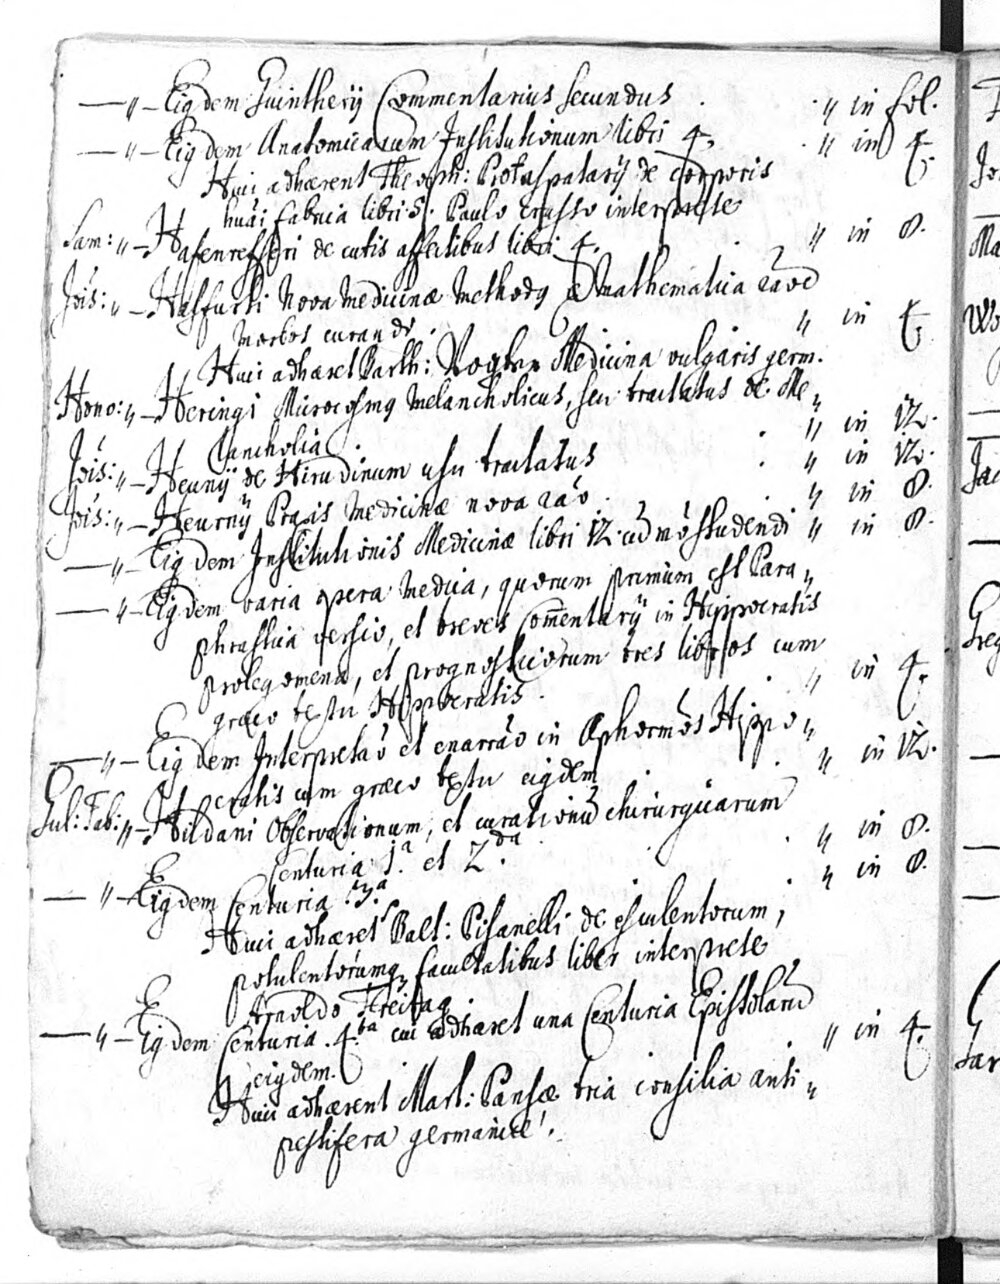 — „ – Eigdem Guintherij Commentarius secundus . „ in fol.
— „ – Eigdem Anatomicarum Institutionum libri 4. „ in 4.
Huic adhærent Theoph: Protaspatarij de corporis
huãi fabrica libri 5. Paulo Crasso interprete
Sam: „ – Hafenrefferi de cutis affectibus libri 4. „ in 8.
Jois: „ – Hasfurti Nova medicinæ methodg è mathematica raõe
morbos curandi . „ in 4.
Huic adhæret Barth: Vogter Medicina vulgaris germ.
Hono: „ – Heringi Microcosmg melancholicus, seu tractatus de Me„
lancholia . „ in 12.
Jois: „ – Heunij de Hirudinum usu tractatus . „ in 12.
Jois: „ – Heurnij Praxis medicinæ nova raõ . „ in 8.
— „ – Eigdem Institutionis Medicinæ libri 12. ad mõ studendi „ in 8.
— „ – Eigdem varia opera medica, quorum primum est Para„
phrastica versio, et breves Comentarij in Hippocratis
prolegomena, et prognosticorum tres libros cum
græco textu Hippocratis . „ in 4.
— „ – Eigdem Interpretaõ et enarraõ in Aphormõs Hippo„
cratis cum græco textu eigdem . „ in 12.
Gul: Fab: „ – Hildani Observationum, et curationũ chirurgicarum
Centuria 1.a et 2.da . „ in 8.
— „ – Eigdem Centuria .3.a . „ in 8.
Huic adhæret Balt: Pisanelli de esculentorum,
potulentorumq facultatibus liber interprete
Arnoldo Freitag .
— „ – Eigdem Centuria .4.ta cui adhæret una Centuria Epistolarũ
eigdem. „ in 4.
Huic adhærent Mart: Pansæ tria consilia anti„
pestifera germanicè .